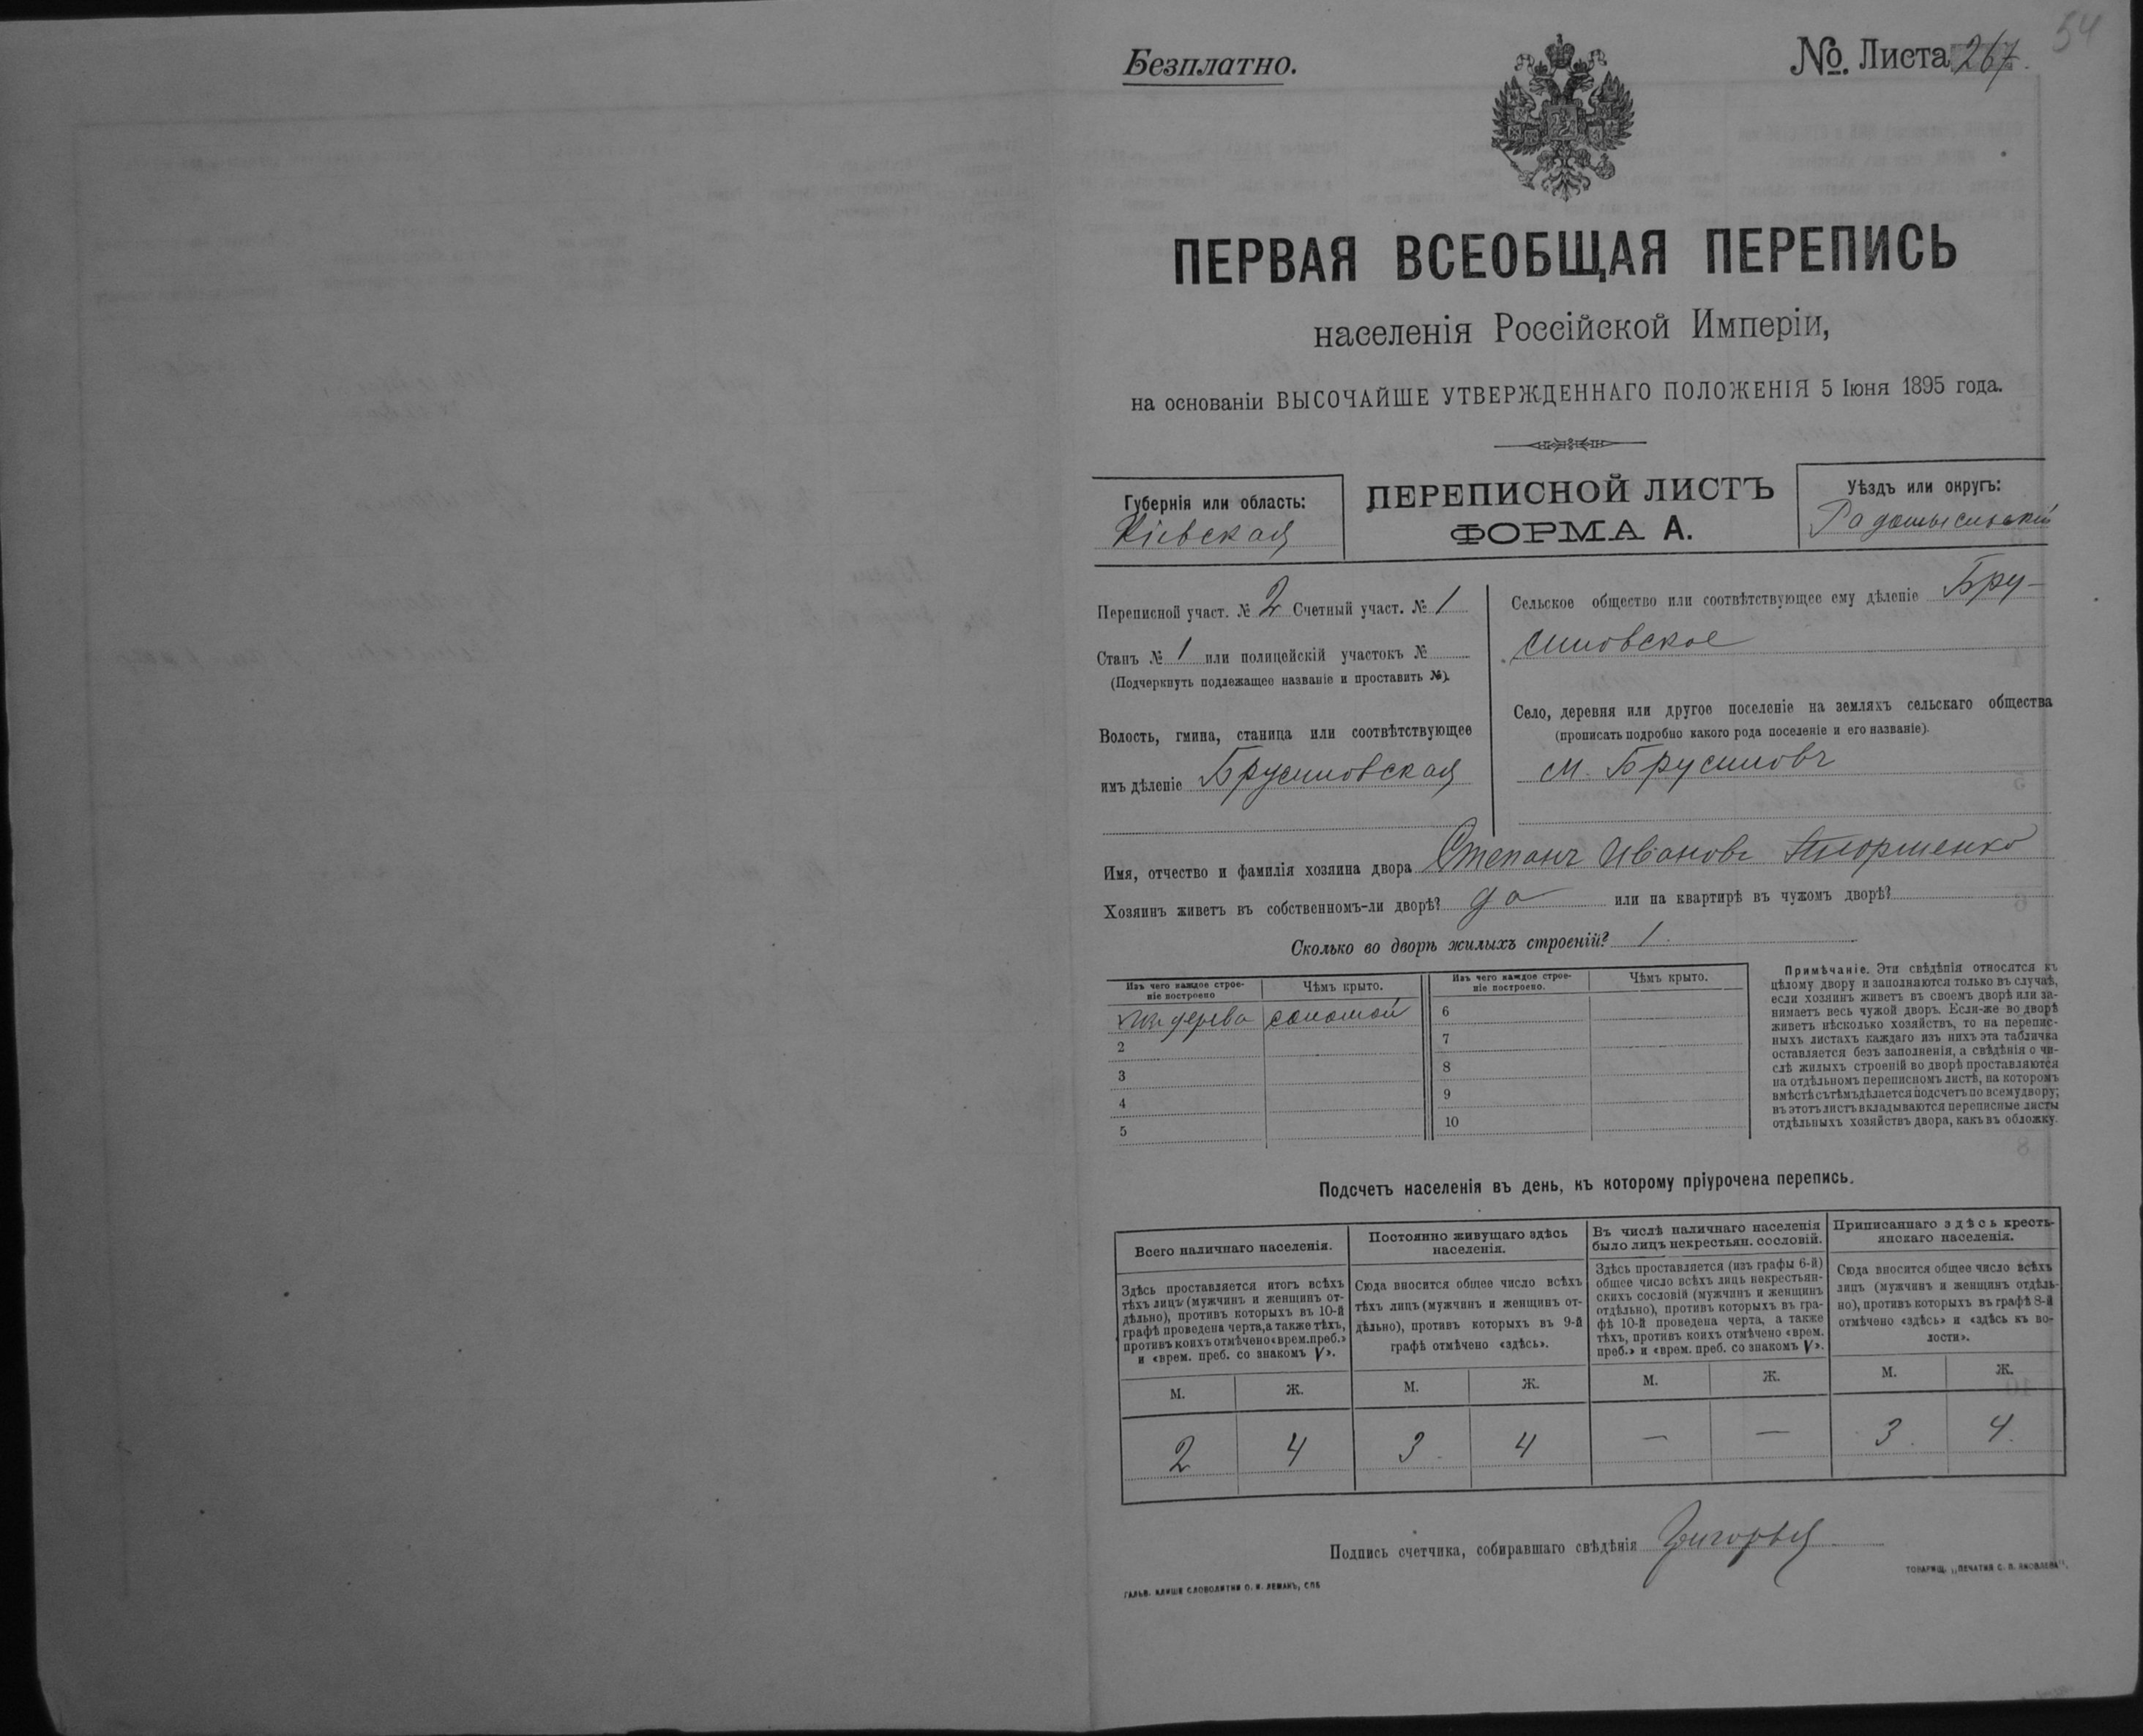 54
Безплатно.
№. Листа 267.
ПЕРВАЯ ВСЕОБЩАЯ ПЕРЕПИСЬ
населенія Россійской Имперіи,
на основаніи ВЫСОЧАЙШЕ УТВЕРЖДЕННАГО ПОЛОЖЕНІЯ 5 Іюня 1895 года.
Губернія или область:
Кіевская
ПЕРЕПИСНОЙ ЛИСТЪ
ФОРМА А.
Уѣздъ или округъ:
Радомысльскій
Переписной участ. № 2 Счетный участ. № 1
Станъ № 1 или полицейскій участокъ №
(Подчеркнуть подлежащее названіе и проставить №).
Волость, гмина, станица или соотвѣтствующее
имъ дѣленіе Брусиловская
Сельское общество или соотвѣтствующее ему дѣленіе Бру-
силовское
Село, деревня или другое поселеніе на земляхъ сельскаго общества
(прописать подробно какого рода поселеніе и его названіе).
м. Брусиловъ
Имя, отчество и фамилія хозяина двора Степанъ Ивановъ
Хозяинъ живетъ въ собственномъ-ли дворѣ? да или на квартирѣ въ чужомъ дворѣ?
Сколько во дворѣ жилыхъ строеній? 1.
Изъ чего каждое строе-
ніе построено
Чѣмъ крыто.
Изъ чего каждое строе-
ніе построено.
Чѣмъ крыто.
изъ дерева соломой
6
2
7
3
8
4
9
5
10
Примѣчаніе. Эти свѣдѣнія относятся къ
цѣлому двору и заполняются только въ случаѣ,
если хозяинъ живетъ въ своемъ дворѣ или за-
нимаетъ весь чужой дворъ. Если-же во дворѣ
живетъ нѣсколько хозяйствъ, то на перепис-
ныхъ листахъ каждаго изъ нихъ эта табличка
оставляется безъ заполненія, а свѣдѣнія о чи-
слѣ жилыхъ строеній во дворѣ проставляются
на отдѣльномъ переписномъ листѣ, на которомъ
вмѣстѣ съ тѣмъ дѣлается подсчетъ по всему двору;
въ этотъ листъ вкладываются переписные листы
отдѣльныхъ хозяйствъ двора, какъ въ обложку.
Подсчетъ населенія въ день, къ которому пріурочена перепись.
Всего наличнаго населенія.
Здѣсь проставляется итогъ всѣхъ
тѣхъ лицъ (мужчинъ и женщинъ от-
дѣльно), противъ которыхъ въ 10-й
графѣ проведена черта, а также тѣхъ,
противъ коихъ отмѣчено «врем. преб.»
и «врем. преб. со знакомъ V».
М.
Ж.
2
4
Постоянно живущаго здѣсь
населенія.
Сюда вносится общее число всѣхъ
тѣхъ лицъ (мужчинъ и женщинъ от-
дѣльно), противъ которыхъ въ 9-й
графѣ отмѣчено «здѣсь».
М.
Ж.
3
4
Въ числѣ наличнаго населенія
было лицъ некрестьян. сословій.
Здѣсь проставляется (изъ графы 6-й)
общее число всѣхъ лицъ некрестьян-
скихъ сословій (мужчинъ и женщинъ
отдѣльно), противъ которыхъ въ гра-
фѣ 10-й проведена черта, а также
тѣхъ, противъ коихъ отмѣчено «врем.
преб.» и «врем. преб. со знакомъ V».
М.
Ж.
—
—
Приписаннаго здѣсь кресть-
янскаго населенія.
Сюда вносится общее число всѣхъ
лицъ (мужчинъ и женщинъ отдѣль-
но), противъ которыхъ въ графѣ 8-й
отмѣчено «здѣсь» и «здѣсь къ во-
лости».
М.
Ж.
3
4
Подпись счетчика, собиравшаго свѣдѣнія
ГАЛЬВ. КЛИШЕ СЛОВОЛИТНИ О. И. ЛЕМАНЪ, СПБ
ТОВАРИЩ. „ПЕЧАТНЯ С. П. ЯКОВЛЕВА“.